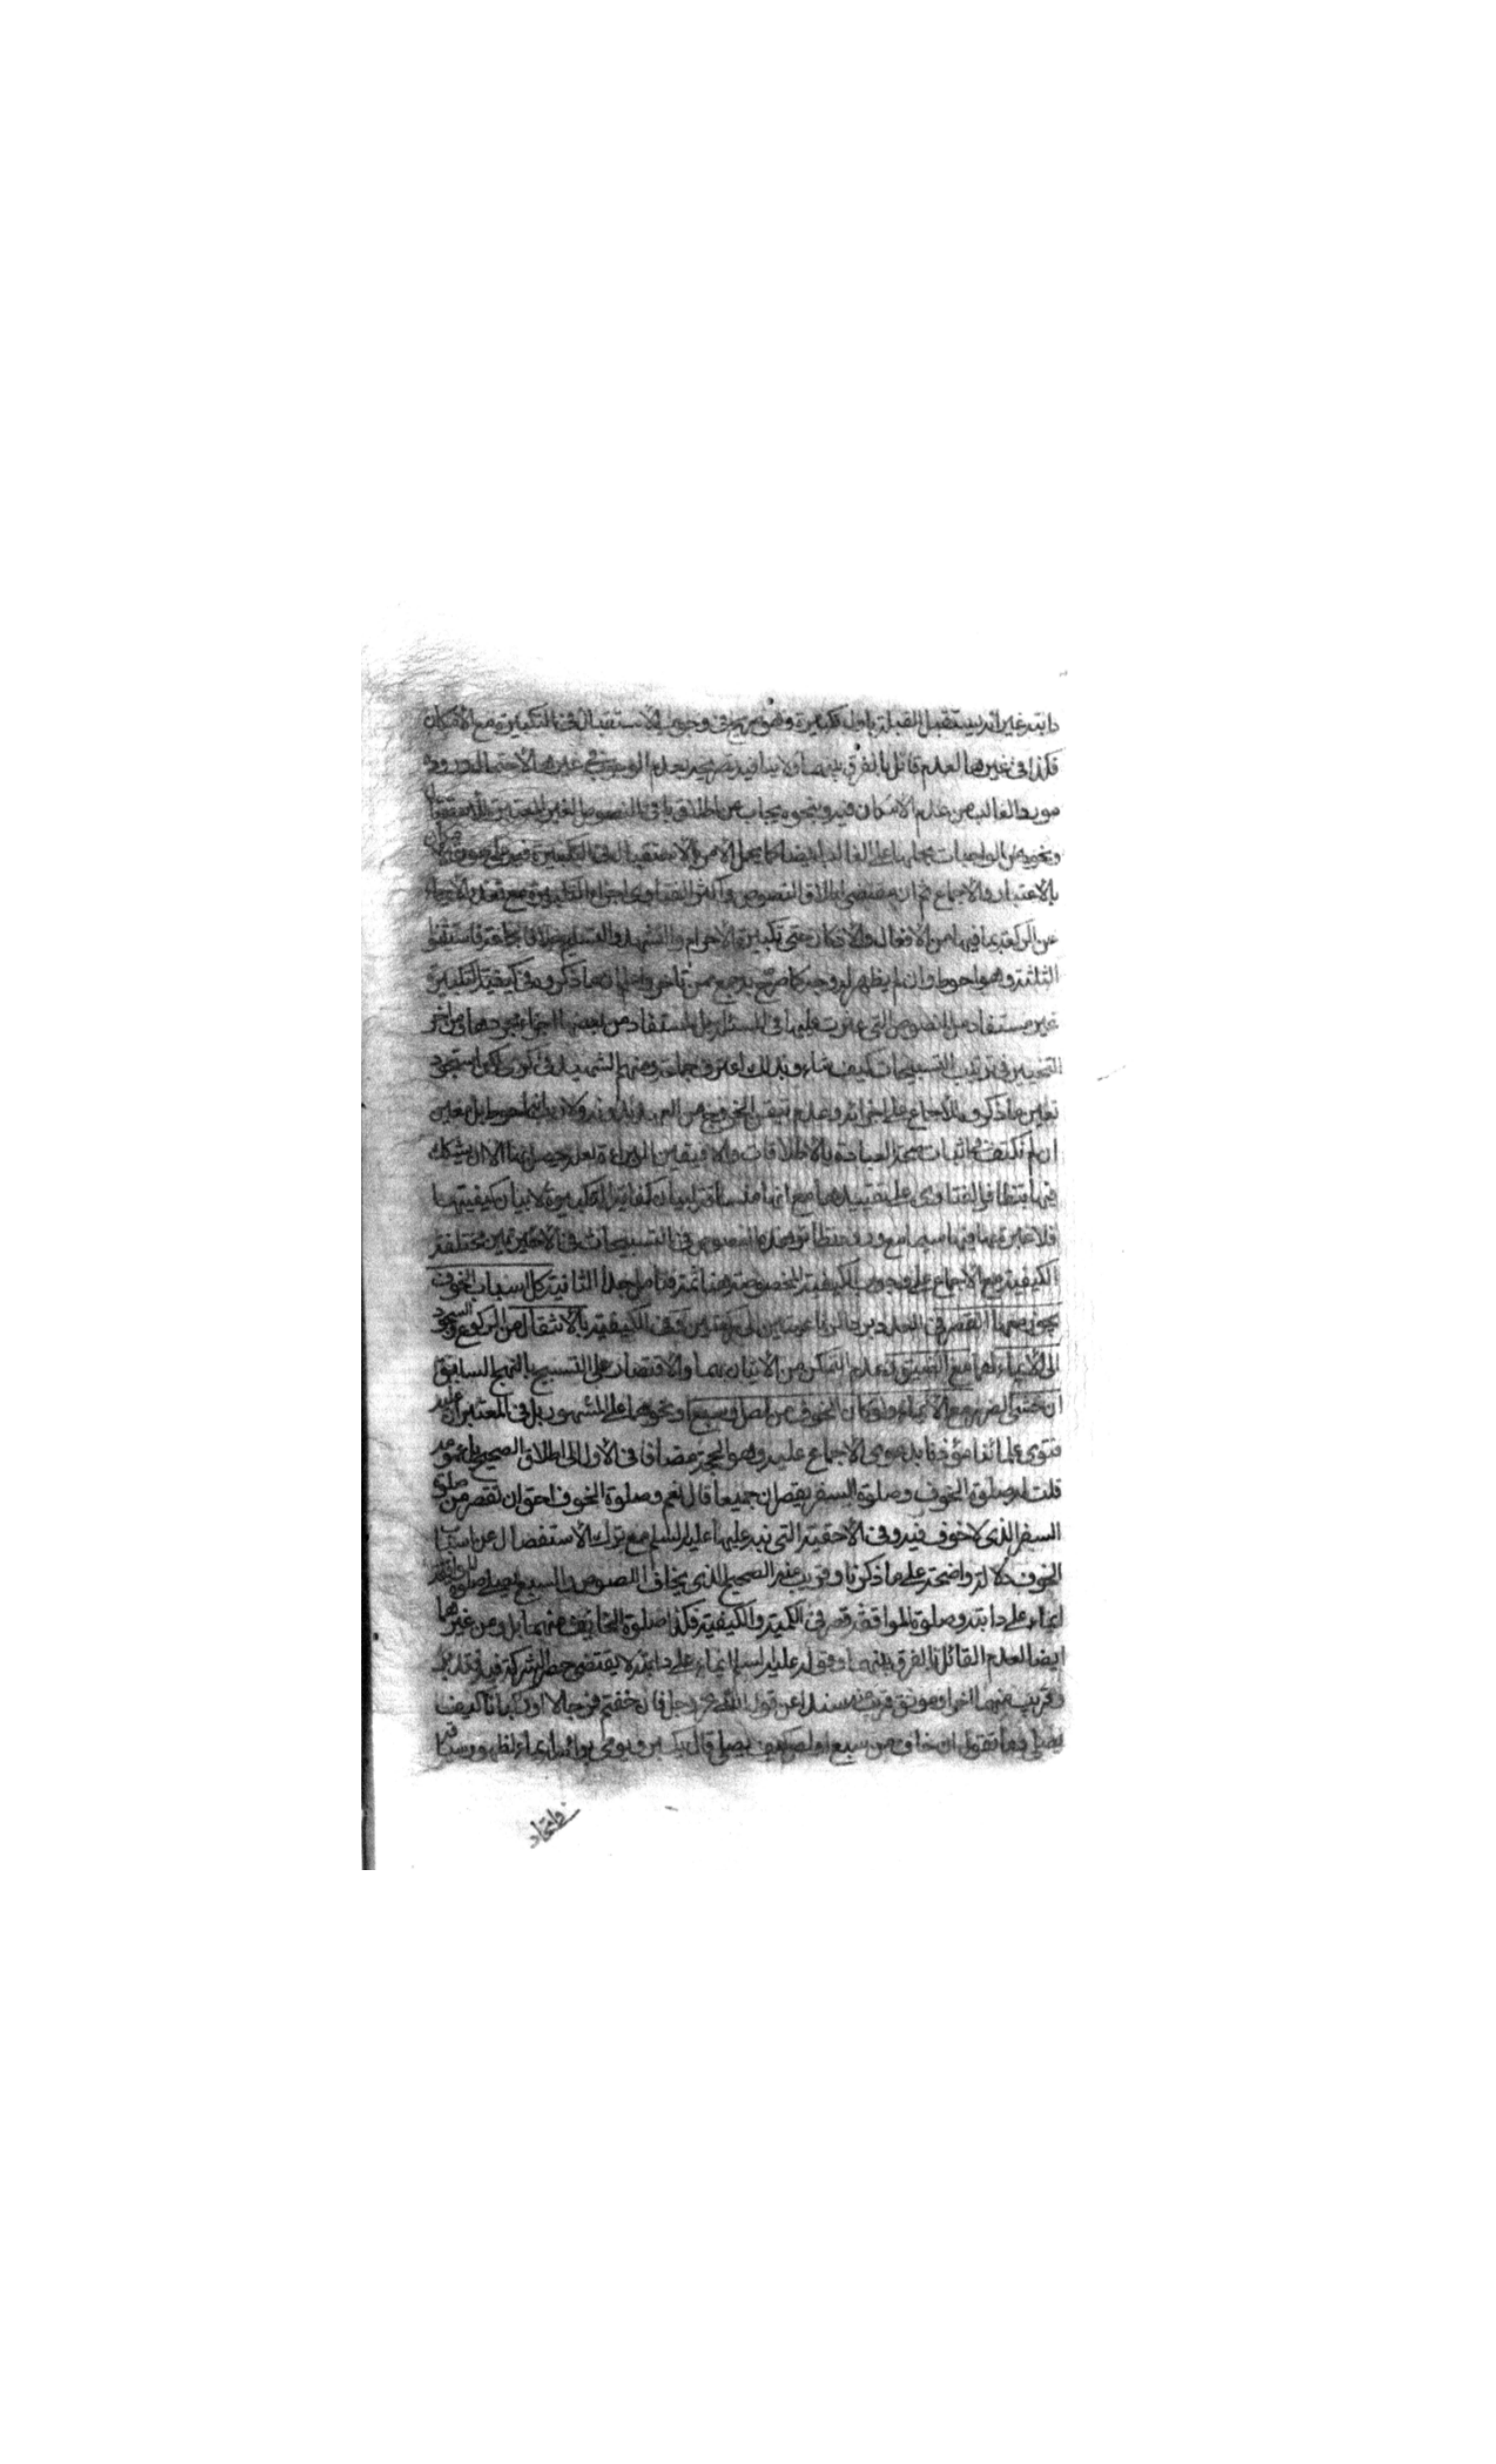 دابته غير انه يستقبل القبلة باول تكبيرة وهو صريح في وجوب الاستقبال في التكبيرة مع الامكان
فكذا في غيرها لعدم قائل بالفرق بينهما ولا ينافيه تصريحه بعدم الوجوب في غيرها لاحتمال وروده
مورد الغالب من عدم الامكان فيه وبنحوه يجاب عن اطلاق باقي النصوص الغير المعتبرة للاستقبال
ونحوه من الواجبات بحملها على الغالب ايضا كما يحمل الامر بالاستقبال في التكبيرة فيه على صورة الامكان
بالاعتبار والاجماع ثم ان مقتضى اطلاق النصوص واكثر الفتاوى اجزاء التكبيرة مع تعذر الايماء
عن الركعة بما فيها من الافعال والاذكار حتى تكبيرة الاحرام والتشهد والتسليم خلافا لجماعة فاستثنوا
الثلثة وهو احوط وان لم يظهر له وجه كما صرح به جمع ممن تاخر واعلم ان ما ذكروه في كيفية التكبيرة
غير مستفاد من النصوص التي عثرت عليها في المسئلة بل المستفاد من بعضها اجزاء مجردها ومن اخر
التخيير في ترتيب التسبيحات كيف شاء وبذلك اعترف جماعة ومنهم الشهيد في كرى لكن استجود
تعين ما ذكروه للاجماع على اجزائه وعدم تيقن الخروج من العهدة بدونه ولا ريب انه احوط بل معين
ان لم نكتف في اثبات صحة العبادة بالاطلاقات والا فيقين البراءة لعله حصل بها الا ان يشكك
فيها بتظافر الفتاوى على تقييدها مع انها منساقة لبيان كفاية التكبيرة لا بيان كيفيتها
فلا عبرة بها فيها سيما مع ورود نظائر هذه النصوص في التسبيحات في الاخيرتين مختلفة
الكيفية مع الاجماع على وجوب الكيفية المخصوصة هنا ثمة فتامل جدا الثانية كل اسباب الخوف
يجوز معها القصر في العدد برد الرباعيتين الى ركعتين وفي الكيفية بالانتقال من الركوع والسجود
الى الايماء لهما مع الضيق وعدم التمكن من الاتيان بهما والاقتصار على التسبيح بالنهج السابق
ان خشي الضرر مع الايماء ولو كان الخوف من لص او سبع او نحوهما على المشهور بل في المعتبر ان عليه
فتوى علمائنا مؤذنا بدعوى الاجماع عليه وهو الحجة مضافا في الاول الى اطلاق الصحيح بل عمومه
قلت له صلوة الخوف وصلوة السفر يقصران جميعا قال نعم وصلوة الخوف احق ان تقصر من صلوة
السفر الذي لا خوف فيه وفي الاحقية التي نبه عليها عليه السلم مع ترك الاستفصال عن اسباب
الخوف دلالة واضحة على ما ذكرنا وقريب منه الصحيح الذي يخاف اللصوص والسبع يصلي صلوة المواقفة
ايماء على دابته وصلوة المواقفة قصر في الكمية والكيفية فكذا صلوة الخائف منهما بل ومن غيرهما
ايضا لعدم القائل بالفرق بينهما وقوله عليه السلم ايماء على دابته لا يقتضي حصر الشركة فيه فقد بر
وقريب منهما اخر او موثق قريب منه سندا عن قول الله عز وجل فان خفتم فرجالا او ركبانا كيف
يصلي وما تقول ان خاف من سبع او لص كيف يصلي قال يكبر ويومي براسه ايماء لظهور سياقه
واتحاد